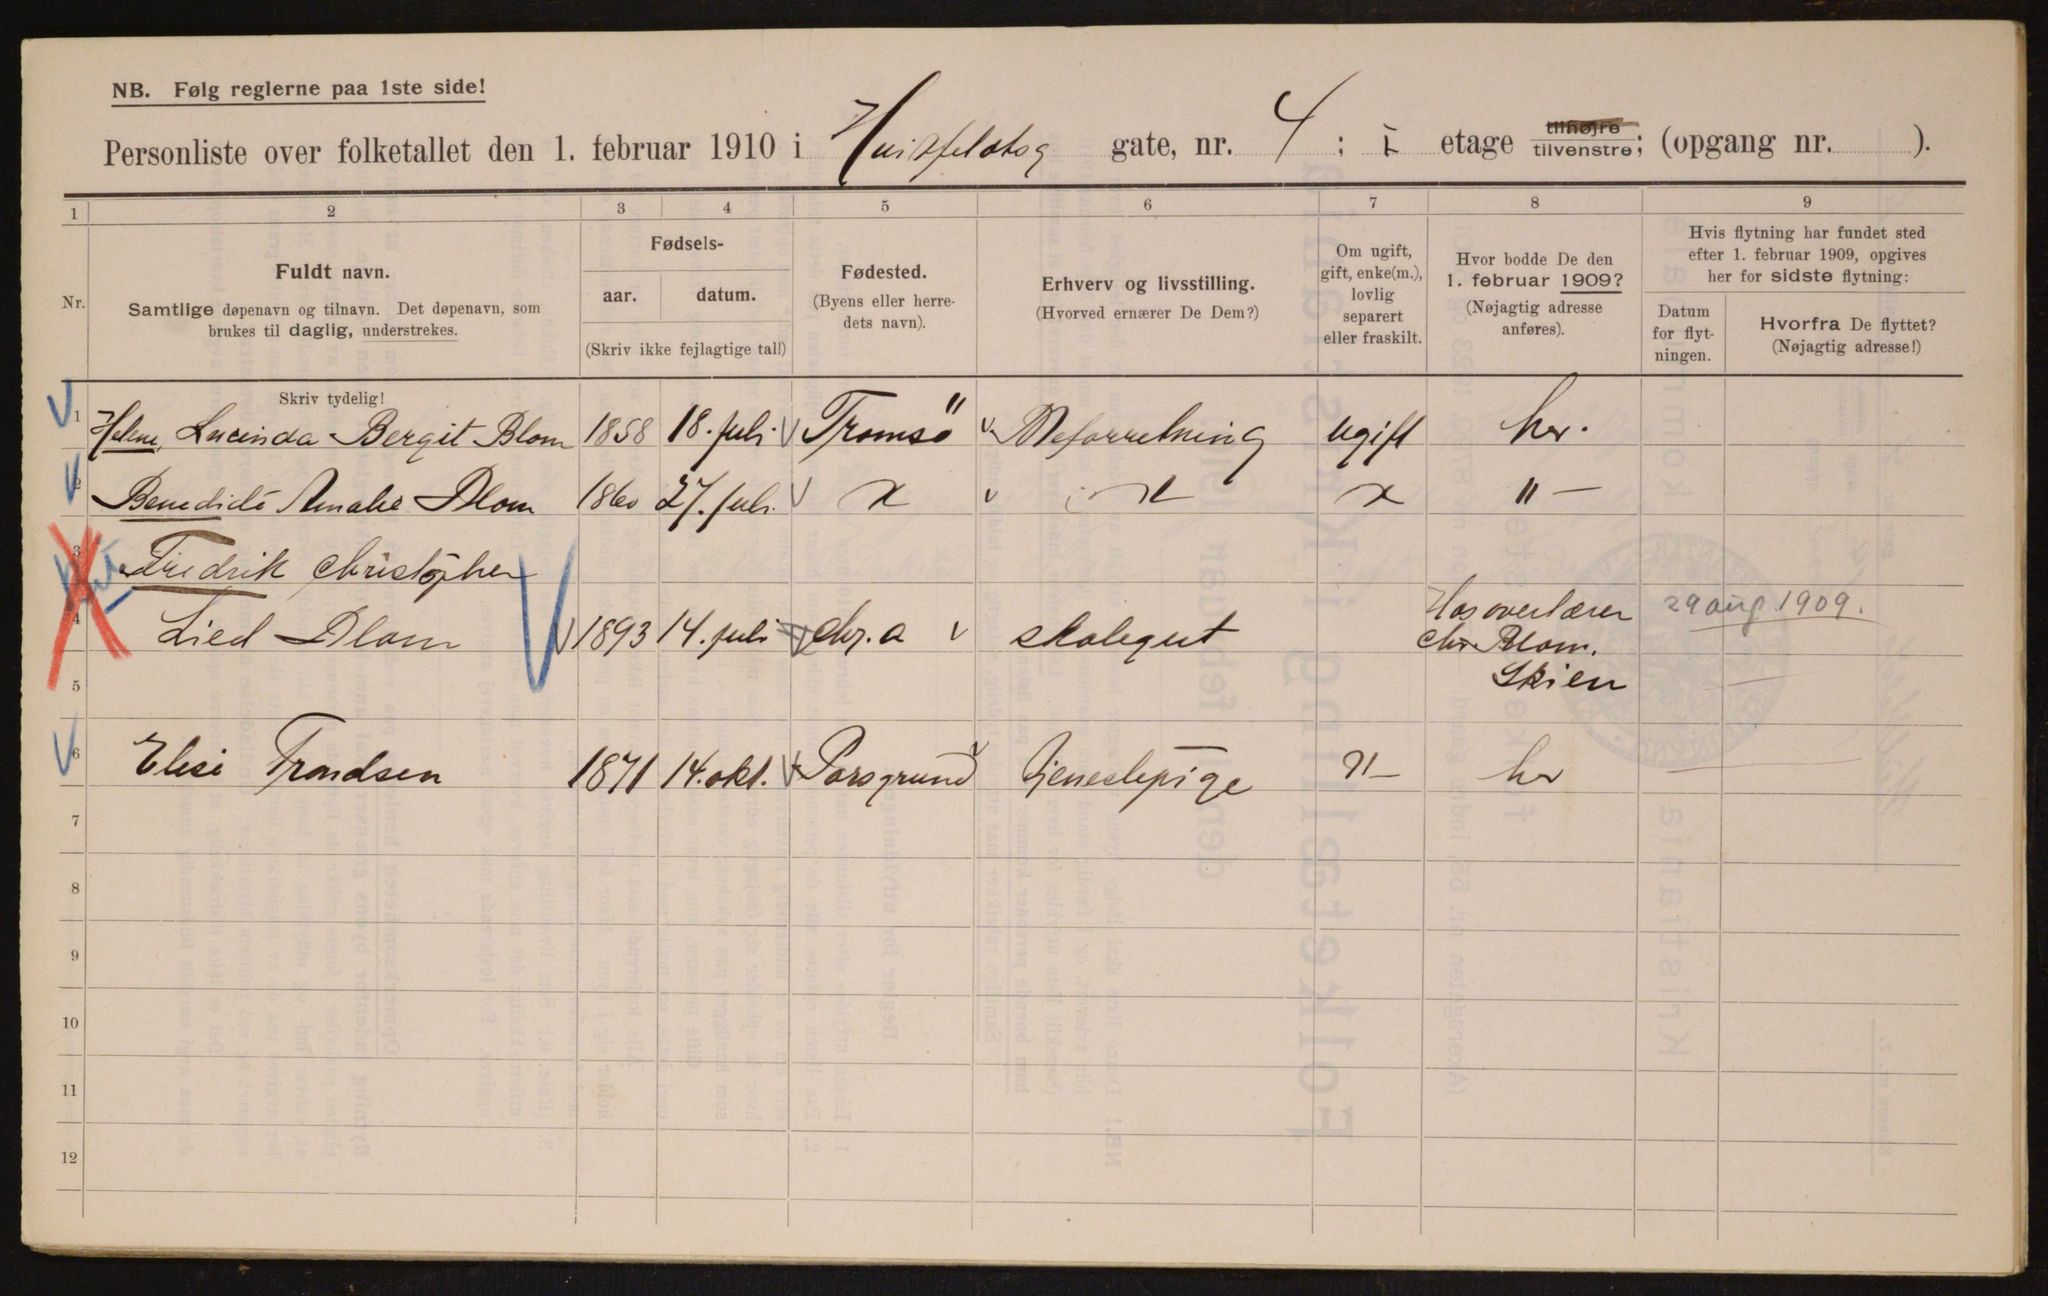 NB. Følg reglerne paa 1ste side!
Personliste over folketallet den 1. februar 1910 i Huitfeldtsg gate, nr. 4 ; I etage tilhøjre tilvenstre; (opgang nr. ).
1 2 3 4 5 6 7 8 9
Nr.
Fuldt navn.
Samtlige døpenavn og tilnavn. Det døpenavn, som
brukes til daglig, understrekes.
Skriv tydelig!
Fødsels-
aar. datum.
(Skriv ikke fejlagtige tal!)
Fødested.
(Byens eller herre-
dets navn).
Erhverv og livsstilling.
(Hvorved ernærer De Dem?)
Om ugift,
gift, enke(m.),
lovlig
separert
eller fraskilt.
Hvor bodde De den
1. februar 1909?
(Nøjagtig adresse
anføres).
Hvis flytning har fundet sted
efter 1. februar 1909, opgives
her for sidste flytning:
Datum
for flyt-
ningen.
Hvorfra De flyttet?
(Nøjagtig adresse!)
1 Helene Lucinda Bergit Blom 1858 18. juli Tromsø Meforretning ugift her.
2 Benedicte Amalie Blom 1860 27. juli x x x " —
3 Fredrik Christopher
4 Lied Blom 1893 14. juli Chr.a skolegut Hos overlærer Chr Blom. Skien 29 aug 1909.
5
6 Elise Trondsen 1871 14. okt. Porsgrund tjenestepige "— her
7
8
9
10
11
12